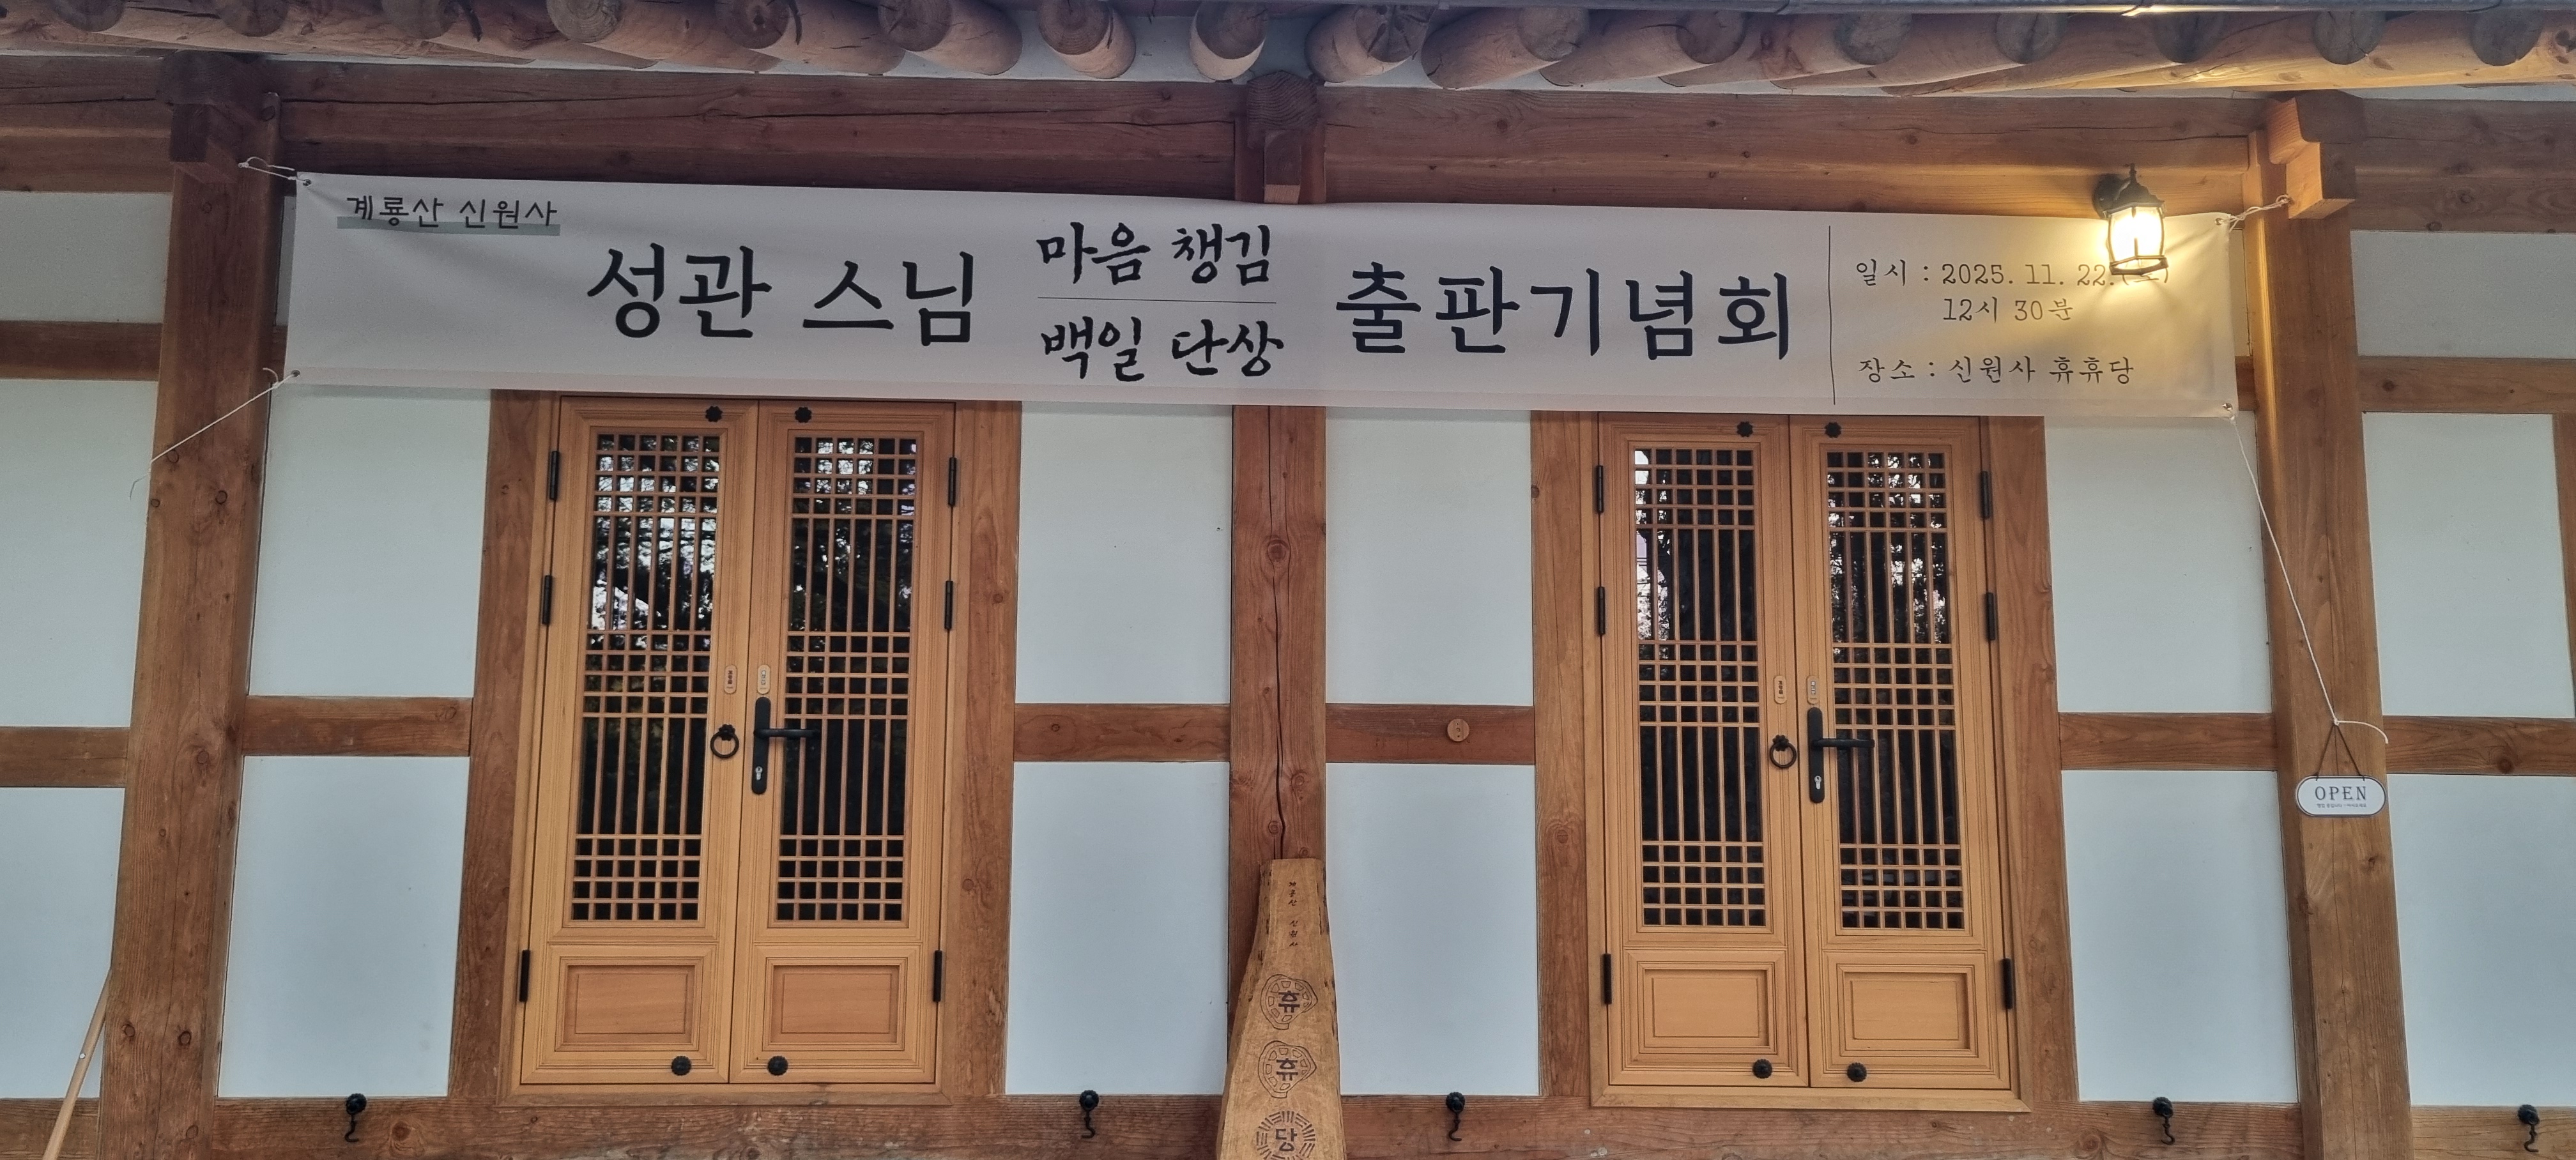 계룡산 신원사
성관 스님
마음 챙김
백일 단상
출판기념회
일시 : 2025. 11. 22.(토)
12시 30분
장소 : 신원사 휴휴당
OPEN
계룡산 신원사
휴
휴
당